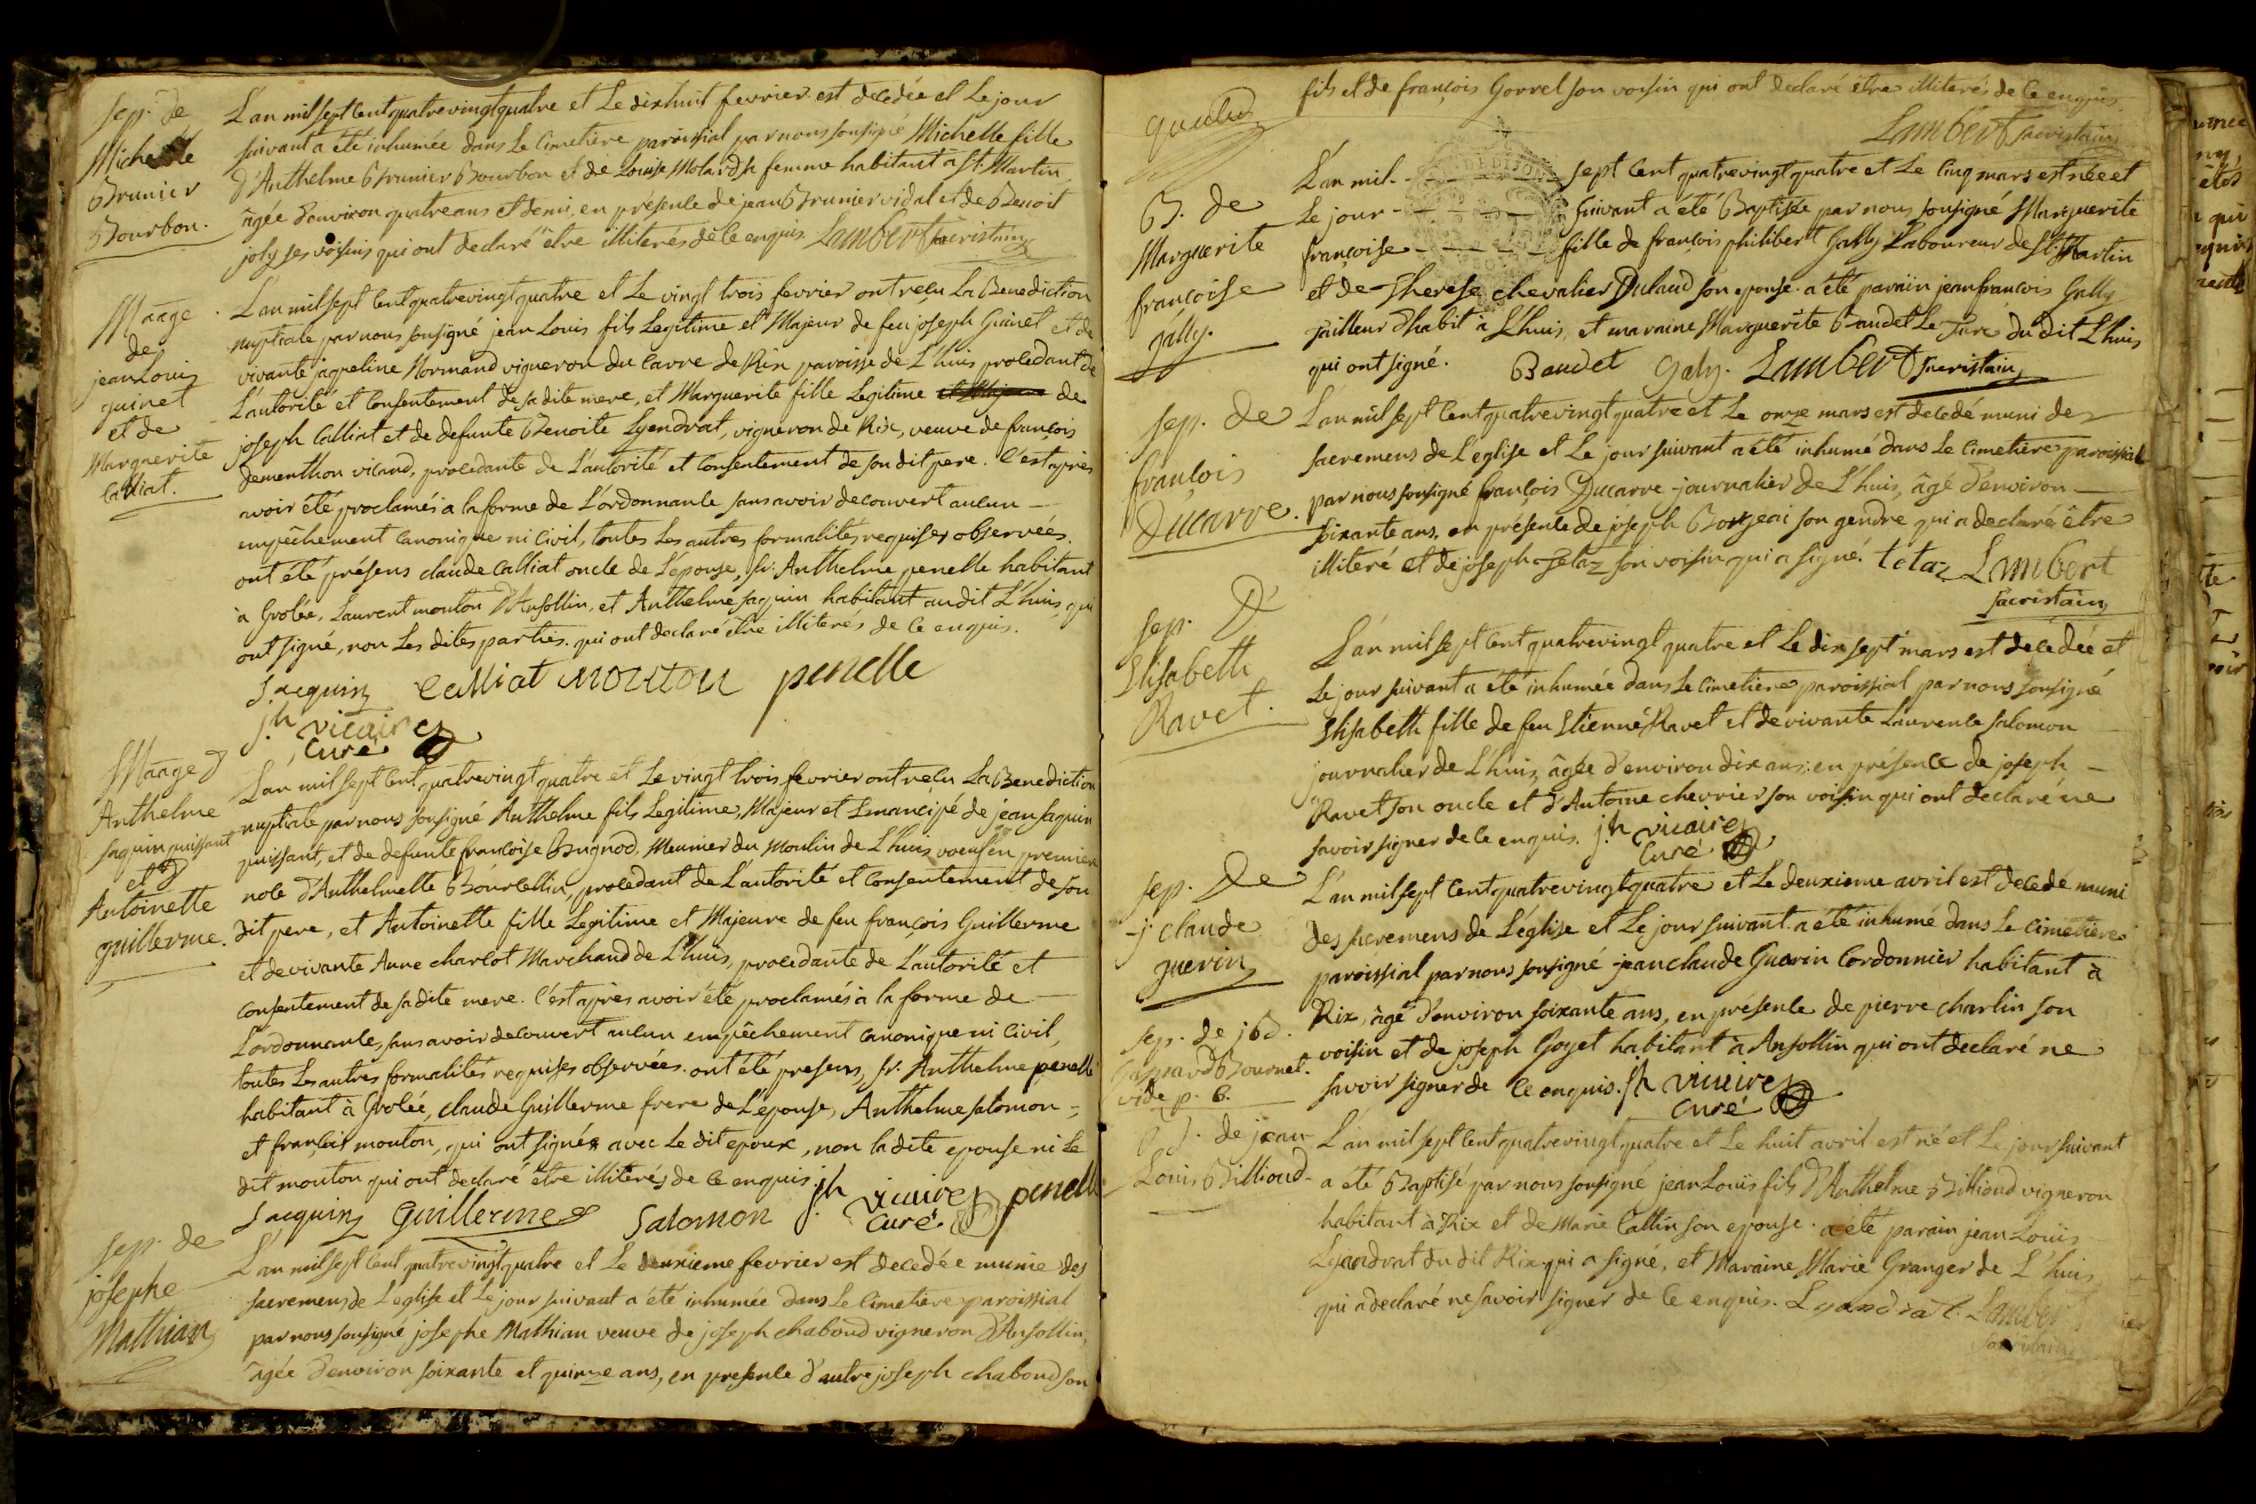 Sep. de
Michelle
Brunier
Bourbon.
L'an mil sept cent quatrevingt quatre et le dixhuit fevrier est decedée et le jour
suivant a été inhumée dans le cimetiere paroissial par nous soussigné Michelle fille
d'Anthelme Brunier Bourbon et de Louise Molard sa femme habitant à St. Martin
âgée d'environ quatre ans et demi, en présence de jean Brunier vidal et de Benoit
joly ses voisins qui ont declaré être illiterés de ce enquis. Lambert sacristain
Maage
de
jean Louis
guinet
et de
Marguerite
Calliat.
L'an mil sept cent quatrevingt quatre et le vingt trois fevrier ont reçu la Benediction
nuptiale par nous soussigné jean Louis fils Legitime et Majeur de feu joseph Guinet et de
vivante jaqueline Normand vigneron du carre de Rix paroisse de L'huis procedant de
L'autorité et consentement de sa dite mere, et Marguerite fille Legitime et Majeure de
joseph Calliat et de defunte Benoite Lyendrat, vigneron de Rix, veuve de françois
dementhon vicand, procedante de L'autorité et consentement de son dit pere. C'est après
avoir été proclamés a la forme de L'ordonnance sans avoir decouvert aucun
empêchement canonique ni civil, toutes les autres formalités requises observées.
ont été présens claude Calliat oncle de L'épouse, sr. Anthelme penelle habitant
à Grolée, Laurent mouton d'Ansollin, et Anthelme jaquin habitant au dit L'huis, qui
ont signé, non Les dites parties qui ont declaré être illiterés de ce enquis.
Jacquin Calliat MOUTON penelle
jh vicaire
Curé
Maage d
Anthelme
jaquin puissant
et d
Antoinette
guillerme.
L'an mil sept cent quatrevingt quatre et Le vingt trois fevrier ont reçu La Benediction
nuptiale par nous soussigné Anthelme fils Legitime, Majeur et Emancipé de jean jaquin
puissant, et de defunte françoise Bugnod. Meunier du Moulin de L'huis voeuf en premiere
noce d'Anthelmette Bourcellin, procedant de L'autorité et consentement de son
dit pere, et Antoinette fille Legitime et Majeure de feu françois Guillerme
et de vivante Anne charlot Marchand de L'huis, procedante de L'autorité et
consentement de sa dite mere. C'est après avoir été proclamés à la forme de
L'ordonnance, sans avoir decouvert aucun empêchement canonique ni civil,
toutes Les autres formalités requises observées. ont été presens, sr. Anthelme penelle
habitant à Grolée, claude Guillerme frere de L'épouse, Anthelme salomon
et françois mouton, qui ont signés avec Le dit epoux, non la dite epouse ni Le
dit mouton qui ont declaré être illiterés de ce enquis. jh vicaire penelle
Jacquin Guillerme Salomon Curé
Sep. de
josephe
Mathian
L'an mil sept cent quatrevingt quatre et Le deuxieme fevrier est decedée munie des
sacremens de L'église et Le jour suivant a été inhumée dans Le cimetiere paroissial
par nous soussigné josephe Mathian veuve de joseph chaboud vigneron d'Ansollin,
âgée d'environ soixante et quinze ans, en presence d'autre joseph chaboud son
fils et de françois Gorrel son voisin qui ont declaré être illiterés de ce enquis.
Lambert sacristain
B. de
Marguerite
françoise
gally.
L'an mil sept cent quatrevingt quatre et Le cinq mars est née et
Le jour suivant a été Baptisée par nous soussigné Marguerite
françoise fille de françois philibert Gally Laboureur de St. Martin
et de Therese chevalier Dulaud son epouse. a été parain jean francois Gally
tailleur d'habit à L'huis, et maraine Marguerite Baudet Le Turc du dit L'huis
qui ont signé. Baudet Galy. Lambert sacristain
Sep. de
françois
Ducarre.
L'an mil sept cent quatrevingt quatre et Le onze mars est decedé muni des
sacremens de L'église et Le jour suivant a été inhumé dans Le cimetiere paroissial
par nous soussigné françois Ducarre journalier de L'huis, âgé d'environ
soixante ans, en présence de joseph Borjeai son gendre qui a declaré être
illiteré et de joseph Tetaz son voisin qui a signé. tetaz Lambert
sacristain
Sep. D
Elisabeth
Ravet.
L'an mil sept cent quatrevingt quatre et Le dix sept mars est decedée et
Le jour suivant a été inhumée dans Le cimetiere paroissial par nous soussigné
Elisabeth fille de feu Etienne Ravet et de vivante Laurence salomon
journalier de L'huis, âgée d'environ dix ans; en présence de joseph
Ravet son oncle et d'Antoine chevrier son voisin qui ont declaré ne
savoir signer de ce enquis. jh vicaire
Curé
Sep. de
j. claude
guerin
L'an mil sept cent quatrevingt quatre et Le deuxieme avril est decedé muni
des sacremens de L'église et Le jour suivant a été inhumé dans Le cimetiere
paroissial par nous soussigné jean claude Guerin Cordonnier habitant à
Rix, âgé d'environ soixante ans, en présence de pierre charlin son
voisin et de joseph Goyet habitant à Ansollin qui ont declaré ne
savoir signer de ce enquis. jh vicaire
Curé
Sep. de
Gaspard Bournet.
vide p. 6.
B. de jean
Louis Billioud
L'an mil sept cent quatrevingt quatre et Le huit avril est né et Le jour suivant
a été Baptisé par nous soussigné jean Louis fils d'Anthelme Billioud vigneron
habitant à Rix et de Marie Cattin son epouse. a été parain jean Louis
Lyandrat du dit Rix qui a signé, et Maraine Marie Granger de L'huis
qui a declaré ne savoir signer de ce enquis. Lyandrat. Lambert
sacristain